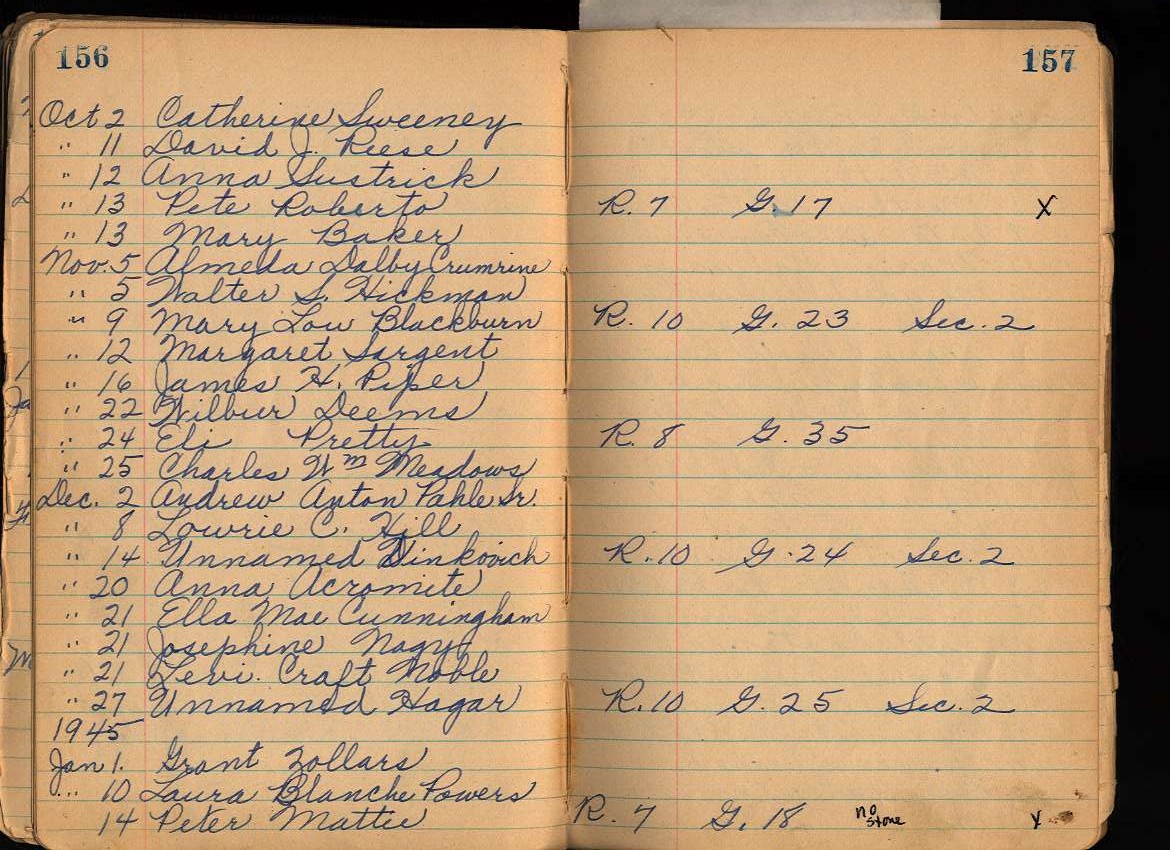 156
157
Oct 2 Catherine Sweeney
" 11 David J. Reese
" 12 Anna Sustrick
" 13 Pete Roberto R. 7 G. 17 X
" 13 Mary Baker
Nov. 5 Almeda Dalby Crumrine
" 5 Walter S. Hickman
" 9 Mary Lou Blackburn R. 10 G. 23 Sec. 2
" 12 Margaret Sargent
" 16 James H. Piper
" 22 Wilbur Deems
" 24 Eli Pretty R. 8 G. 35
" 25 Charles Wm Meadows
Dec. 2 Andrew Anton Pahle Sr.
" 8 Lowrie C. Hill
" 14 Unnamed Dinkovich R. 10 G. 24 Sec. 2
" 20 Anna Acromite
" 21 Ella Mae Cunningham
" 21 Josephine Nagy
" 21 Levi Craft Noble
" 27 Unnamed Hagar R. 10 G. 25 Sec. 2
1945
Jan 1. Grant Zollars
" 10 Laura Blanche Powers
14 Peter Mattie R. 7 G. 18 no stone x